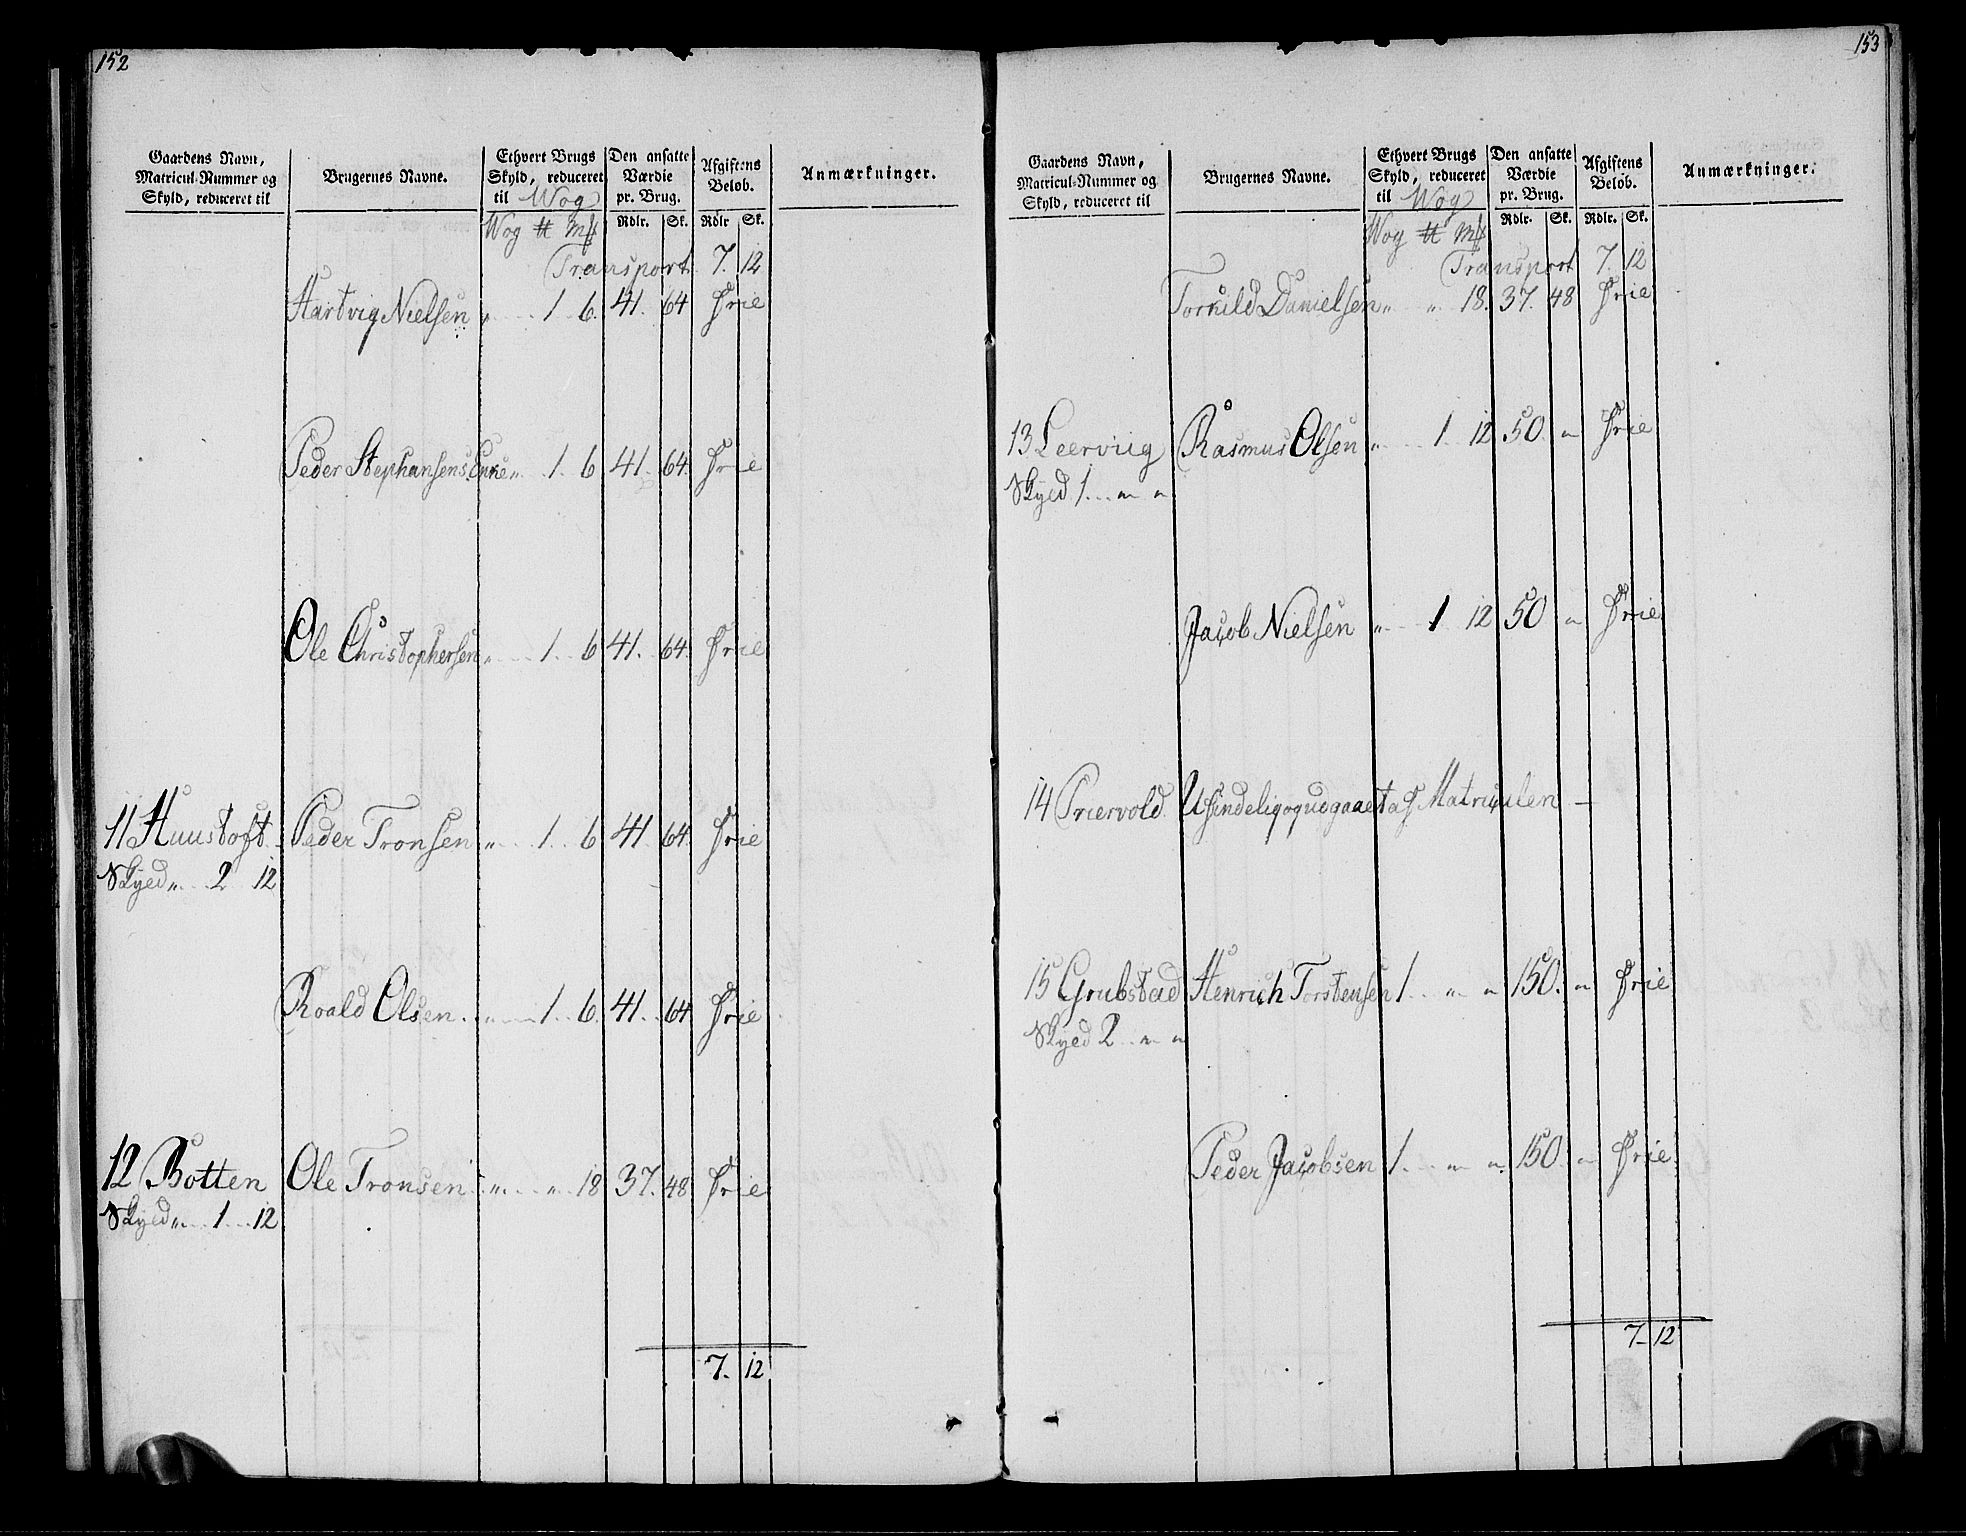 152
Gaardens Navn, Matricul-Nummer og Skyld, reduceret til
Brugernes Navne.
Ethvert Brugs Skyld, reduceret til Wog
Den ansatte Værdie pr. Brug.
Afgiftens Beløb.
Anmærkninger.
Wog ℔ Mk Rdlr. Sk. Rdlr Sk.
Transport 7. 12
Hartvig Nielsen „ 1 6. 41. 64 Frie
Peder Stephansens Enke „ 1. 6 41. 64. Frie
Ole Christophersen „ 1. 6 41. 64. Frie
11 Huustoft Peder Tronsen „ 1. 6 41. 64. Frie
Skyld „ 2 12
Roald Olsen „ 1 6. 41. 64 Frie
12 Botten Ole Tronsen „ „ 18 37. 48 Frie
Skyld „ 1 12
7. 12
153
Gaardens Navn, Matricul-Nummer og Skyld, reduceret til
Brugernes Navne.
Ethvert Brugs Skyld, reduceret til Wog
Den ansatte Værdie pr. Brug.
Afgiftens Beløb.
Anmærkninger.
Wog ℔ Mk Rdlr. Sk. Rdlr. Sk.
Transport 7. 12
Torkild Danielsen „ „ 18. 37. 48 Frie
13 Leerviig Rasmus Olsen „ 1. 12 50. „ Frie
Skyld 1 „ „
Jacob Nielsen „ 1 12 50 „ Frie
14 Friervold Usindelig og udgaaet af Matriculen —
15 Grubstad Henrich Torstensen 1 „ „ 150. „ Frie
Skyld 2 „ „
Peder Jacobsen 1 „ „ 150. „ Frie
7 12